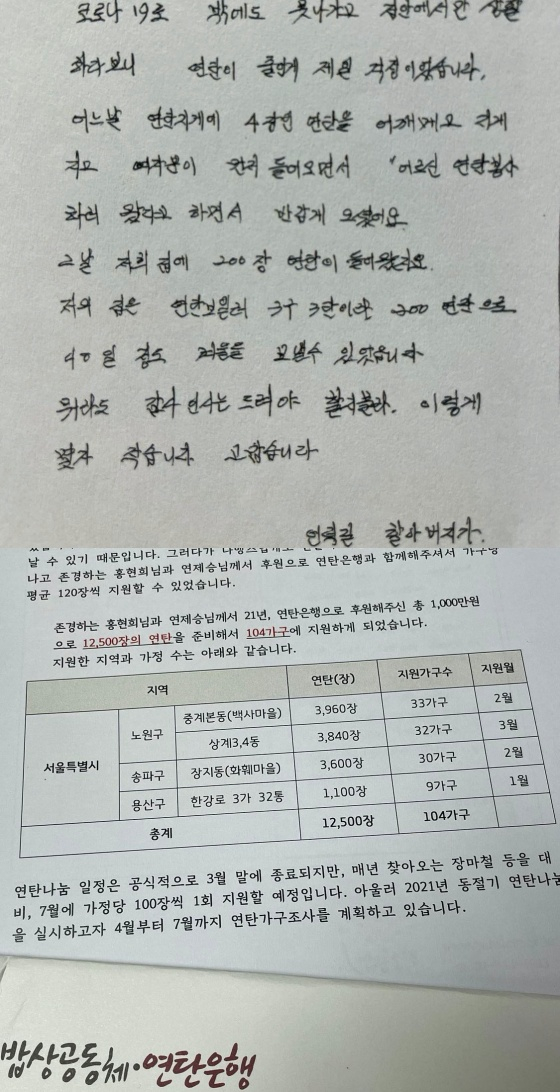 코로나 19로 밖에도 못나가고 집안에서만 생활
하다보니 연탄이 줄던게 제일 걱정이었습니다.
어느날 연탄지게에 4장인 연탄을 어깨에요 지게
지고 여자분이 먼저 들어오면서 "어르신 연탄봉사
하러 왔다고 하면서 반갑게 오셨어요
그날 저희 집에 200장 연탄이 들어왔고요.
저의 집은 연탄보일러 3구 3탄이라 200 연탄으로
40일 정도 겨울을 보낼수 있었습니다
뭐라도 감사 인사는 드려야 할거같아. 이렇게
몇자 적습니다 고맙습니다
할아버지가.
날 수 있기 때문입니다. 그러다가
나고 존경하는 홍현희님과 연제승님께서 후원으로 연탄은행과 함께해주셔서 가구당
평균 120장씩 지원할 수 있었습니다.
존경하는 홍현희님과 연제승님께서 21년, 연탄은행으로 후원해주신 총 1,000만원
으로 12,500장의 연탄을 준비해서 104가구에 지원하게 되었습니다.
지원한 지역과 가정 수는 아래와 같습니다.
지역 연탄(장) 지원가구수 지원월
서울특별시 노원구 중계본동(백사마을) 3,960장 33가구 2월
상계3,4동 3,840장 32가구 3월
송파구 장지동(화훼마을) 3,600장 30가구 2월
용산구 한강로 3가 32통 1,100장 9가구 1월
총계 12,500장 104가구
연탄나눔 일정은 공식적으로 3월 말에 종료되지만, 매년 찾아오는 장마철 등을 대
비, 7월에 가정당 100장씩 1회 지원할 예정입니다. 아울러 2021년 동절기 연탄나눔
을 실시하고자 4월부터 7월까지 연탄가구조사를 계획하고 있습니다.
밥상공동체·연탄은행